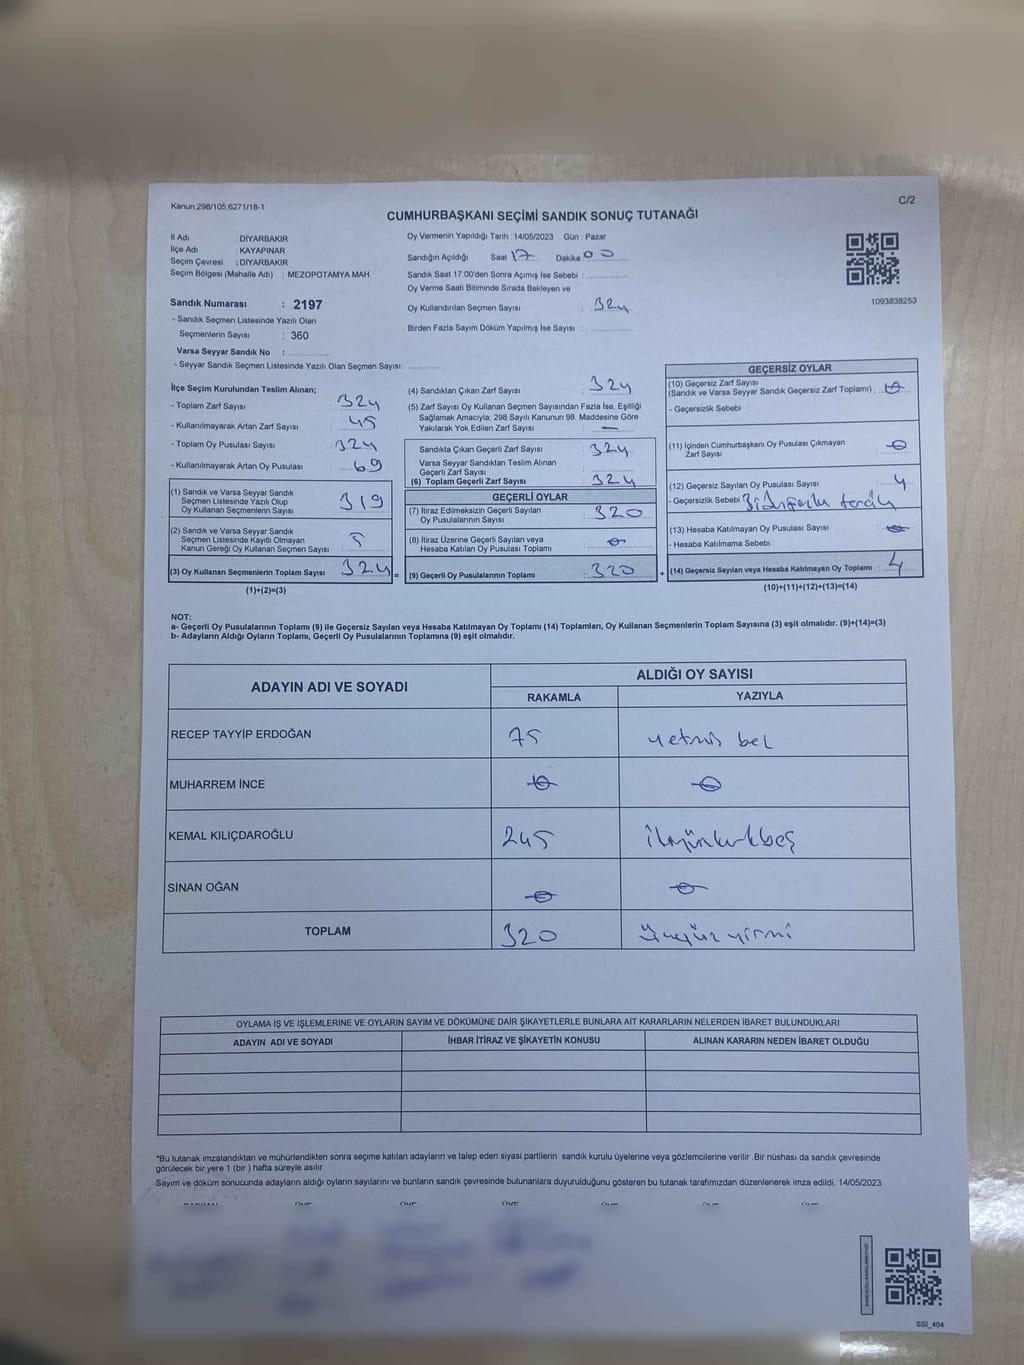 Kanun,298/105,6271/18-1
C/2
CUMHURBAŞKANI SEÇİMİ SANDIK SONUÇ TUTANAĞI
İl Adı : DİYARBAKIR
İlçe Adı : KAYAPINAR
Seçim Çevresi : DİYARBAKIR
Seçim Bölgesi (Mahalle Adı) : MEZOPOTAMYA MAH.
Sandık Numarası : 2197
- Sandık Seçmen Listesinde Yazılı Olan
Seçmenlerin Sayısı : 360
Varsa Seyyar Sandık No :
- Seyyar Sandık Seçmen Listesinde Yazılı Olan Seçmen Sayısı:
Oy Vermenin Yapıldığı Tarih : 14/05/2023 Gün : Pazar
Sandığın Açıldığı Saat 17 Dakika 00
Sandık Saat 17:00'den Sonra Açımış İse Sebebi :
Oy Verme Saati Bitiminde Sırada Bekleyen ve
Oy Kullandırılan Seçmen Sayısı : 324
Birden Fazla Sayım Döküm Yapılmış İse Sayısı :
1093838253
İlçe Seçim Kurulundan Teslim Alınan;
- Toplam Zarf Sayısı : 324
- Kullanılmayarak Artan Zarf Sayısı : 45
- Toplam Oy Pusulası Sayısı : 324
- Kullanılmayarak Artan Oy Pusulası : 69
(1) Sandık ve Varsa Seyyar Sandık
Seçmen Listesinde Yazılı Olup
Oy Kullanan Seçmenlerin Sayısı 319
(2) Sandık ve Varsa Seyyar Sandık
Seçmen Listesinde Kayıtlı Olmayan
Kanun Gereği Oy Kullanan Seçmen Sayısı : 5
(3) Oy Kullanan Seçmenlerin Toplam Sayısı 324 =
(1)+(2)=(3)
(4) Sandıktan Çıkan Zarf Sayısı : 324
(5) Zarf Sayısı Oy Kullanan Seçmen Sayısından Fazla İse, Eşitliği
Sağlamak Amacıyla; 298 Sayılı Kanunun 98. Maddesine Göre
Yakılarak Yok Edilen Zarf Sayısı : —
Sandıkta Çıkan Geçerli Zarf Sayısı : 324
Varsa Seyyar Sandıktan Teslim Alınan
Geçerli Zarf Sayısı :
(6) Toplam Geçerli Zarf Sayısı : 324
GEÇERLİ OYLAR
(7) İtiraz Edilmeksizin Geçerli Sayılan
Oy Pusulalarının Sayısı : 320
(8) İtiraz Üzerine Geçerli Sayılan veya
Hesaba Katılan Oy Pusulası Toplamı : 0
(9) Geçerli Oy Pusulalarının Toplamı : 320 +
GEÇERSİZ OYLAR
(10) Geçersiz Zarf Sayısı
(Sandık ve Varsa Seyyar Sandık Geçersiz Zarf Toplamı) : 0
- Geçersizlik Sebebi :
(11) İçinden Cumhurbaşkanı Oy Pusulası Çıkmayan
Zarf Sayısı : 0
(12) Geçersiz Sayılan Oy Pusulası Sayısı : 4
- Geçersizlik Sebebi
(13) Hesaba Katılmayan Oy Pusulası Sayısı : 0
- Hesaba Katılmama Sebebi :
(14) Geçersiz Sayılan veya Hesaba Katılmayan Oy Toplamı : 4
(10)+(11)+(12)+(13)=(14)
NOT:
a- Geçerli Oy Pusulalarının Toplamı (9) ile Geçersiz Sayılan veya Hesaba Katılmayan Oy Toplamı (14) Toplamları, Oy Kullanan Seçmenlerin Toplam Sayısına (3) eşit olmalıdır. (9)+(14)=(3)
b- Adayların Aldığı Oyların Toplamı, Geçerli Oy Pusulalarının Toplamına (9) eşit olmalıdır.
ADAYIN ADI VE SOYADI
ALDIĞI OY SAYISI
RAKAMLA YAZIYLA
RECEP TAYYİP ERDOĞAN 75 yetmiş beş
MUHARREM İNCE 0 0
KEMAL KILIÇDAROĞLU 245 ikiyüzkırkbeş
SİNAN OĞAN 0 0
TOPLAM 320 Üçyüz yirmi
OYLAMA İŞ VE İŞLEMLERİNE VE OYLARIN SAYIM VE DÖKÜMÜNE DAİR ŞİKAYETLERLE BUNLARA AİT KARARLARIN NELERDEN İBARET BULUNDUKLARI
ADAYIN ADI VE SOYADI İHBAR İTİRAZ VE ŞİKAYETİN KONUSU ALINAN KARARIN NEDEN İBARET OLDUĞU
*Bu tutanak imzalandıktan ve mühürlendikten sonra seçime katılan adayların ve talep eden siyasi partilerin sandık kurulu üyelerine veya gözlemcilerine verilir .Bir nüshası da sandık çevresinde
görülecek bir yere 1 (bir ) hafta süreyle asılır.
Sayım ve döküm sonucunda adayların aldığı oyların sayılarını ve bunların sandık çevresinde bulunanlara duyurulduğunu gösteren bu tutanak tarafımızdan düzenlenerek imza edildi. 14/05/2023
SSI_404